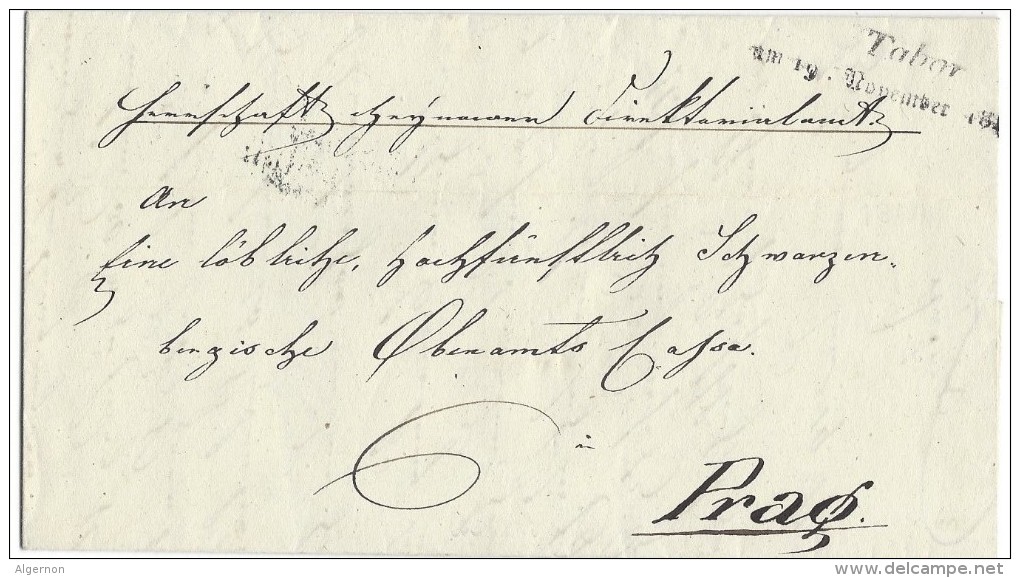 Tabor
am 19. November 184
Herrschaft Cheynower Direktorialamt
An
Eine löbliche, hochfürstlich Schwarzen„
bergische Oberamts Cassa.
in
Prag.
Algernon
delcampe.net